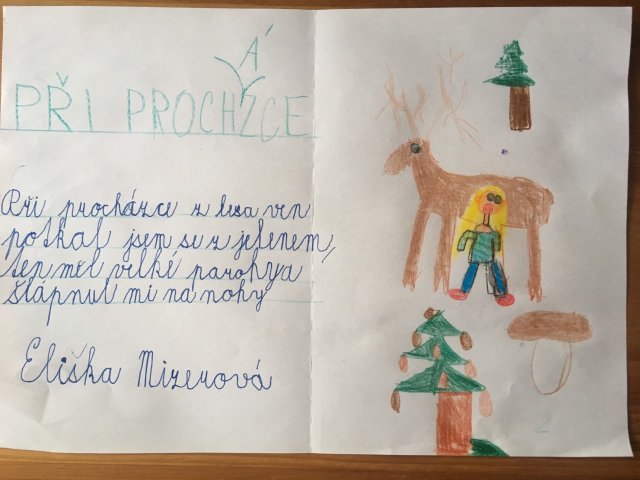 PŘI PROCHÁZCE
Při procházce z lesa ven
potkal jsem se z jelenem,
ten měl velké parohy a
šlápnul mi na nohy
Eliška Mizerová